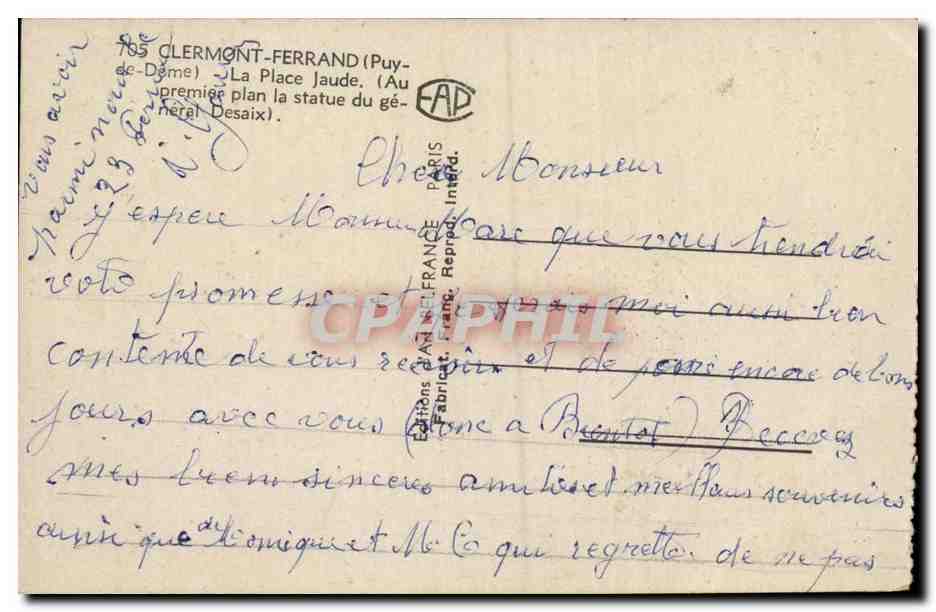 705 CLERMONT-FERRAND (Puy-
de-Dôme) - La Place Jaude. (Au
premier plan la statue du gé-
néral Desaix).
EAP
Editions d'Art RELFRANCE PARIS
Fabricat. Franç. Reprod. Interd.
CPAPHIL
Cher Monsieur
J'espere Monsieur Marc que vous tiendrai
votre promesse et serais moi aussi bien
contente de vous recevoir et de passe encore de bons
jours avec vous (Donc a Bientot) Recevez
mes bien sinceres amities et meilleurs souvenirs
ainsi que de Monique et M. Co qui regrette de ne pas
vous avoir
parmi nous